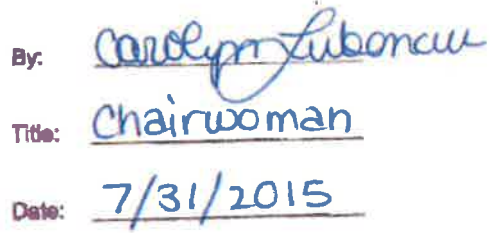 By: Carolyn Lubenau
Title: Chairwoman
Date: 7/31/2015